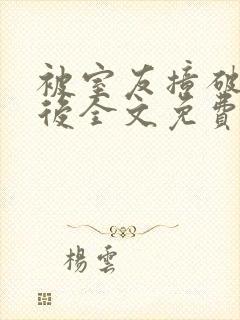 被室友撞破
後全文免費
楊雲